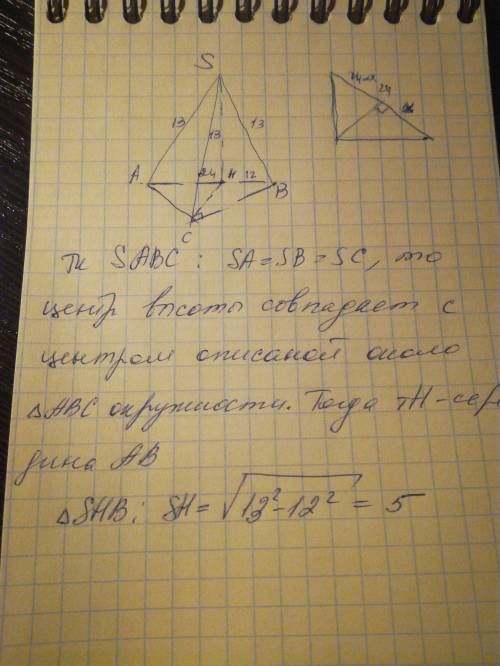 S
13
13
13
24
12
A
H
B
C
24
Тк SABC : SA = SB = SC, то
центр высоты совпадает с
центром описаной около
△ABC окружности. Тогда тH - сере
дина AB
△SHB: SH = √13² - 12² = 5